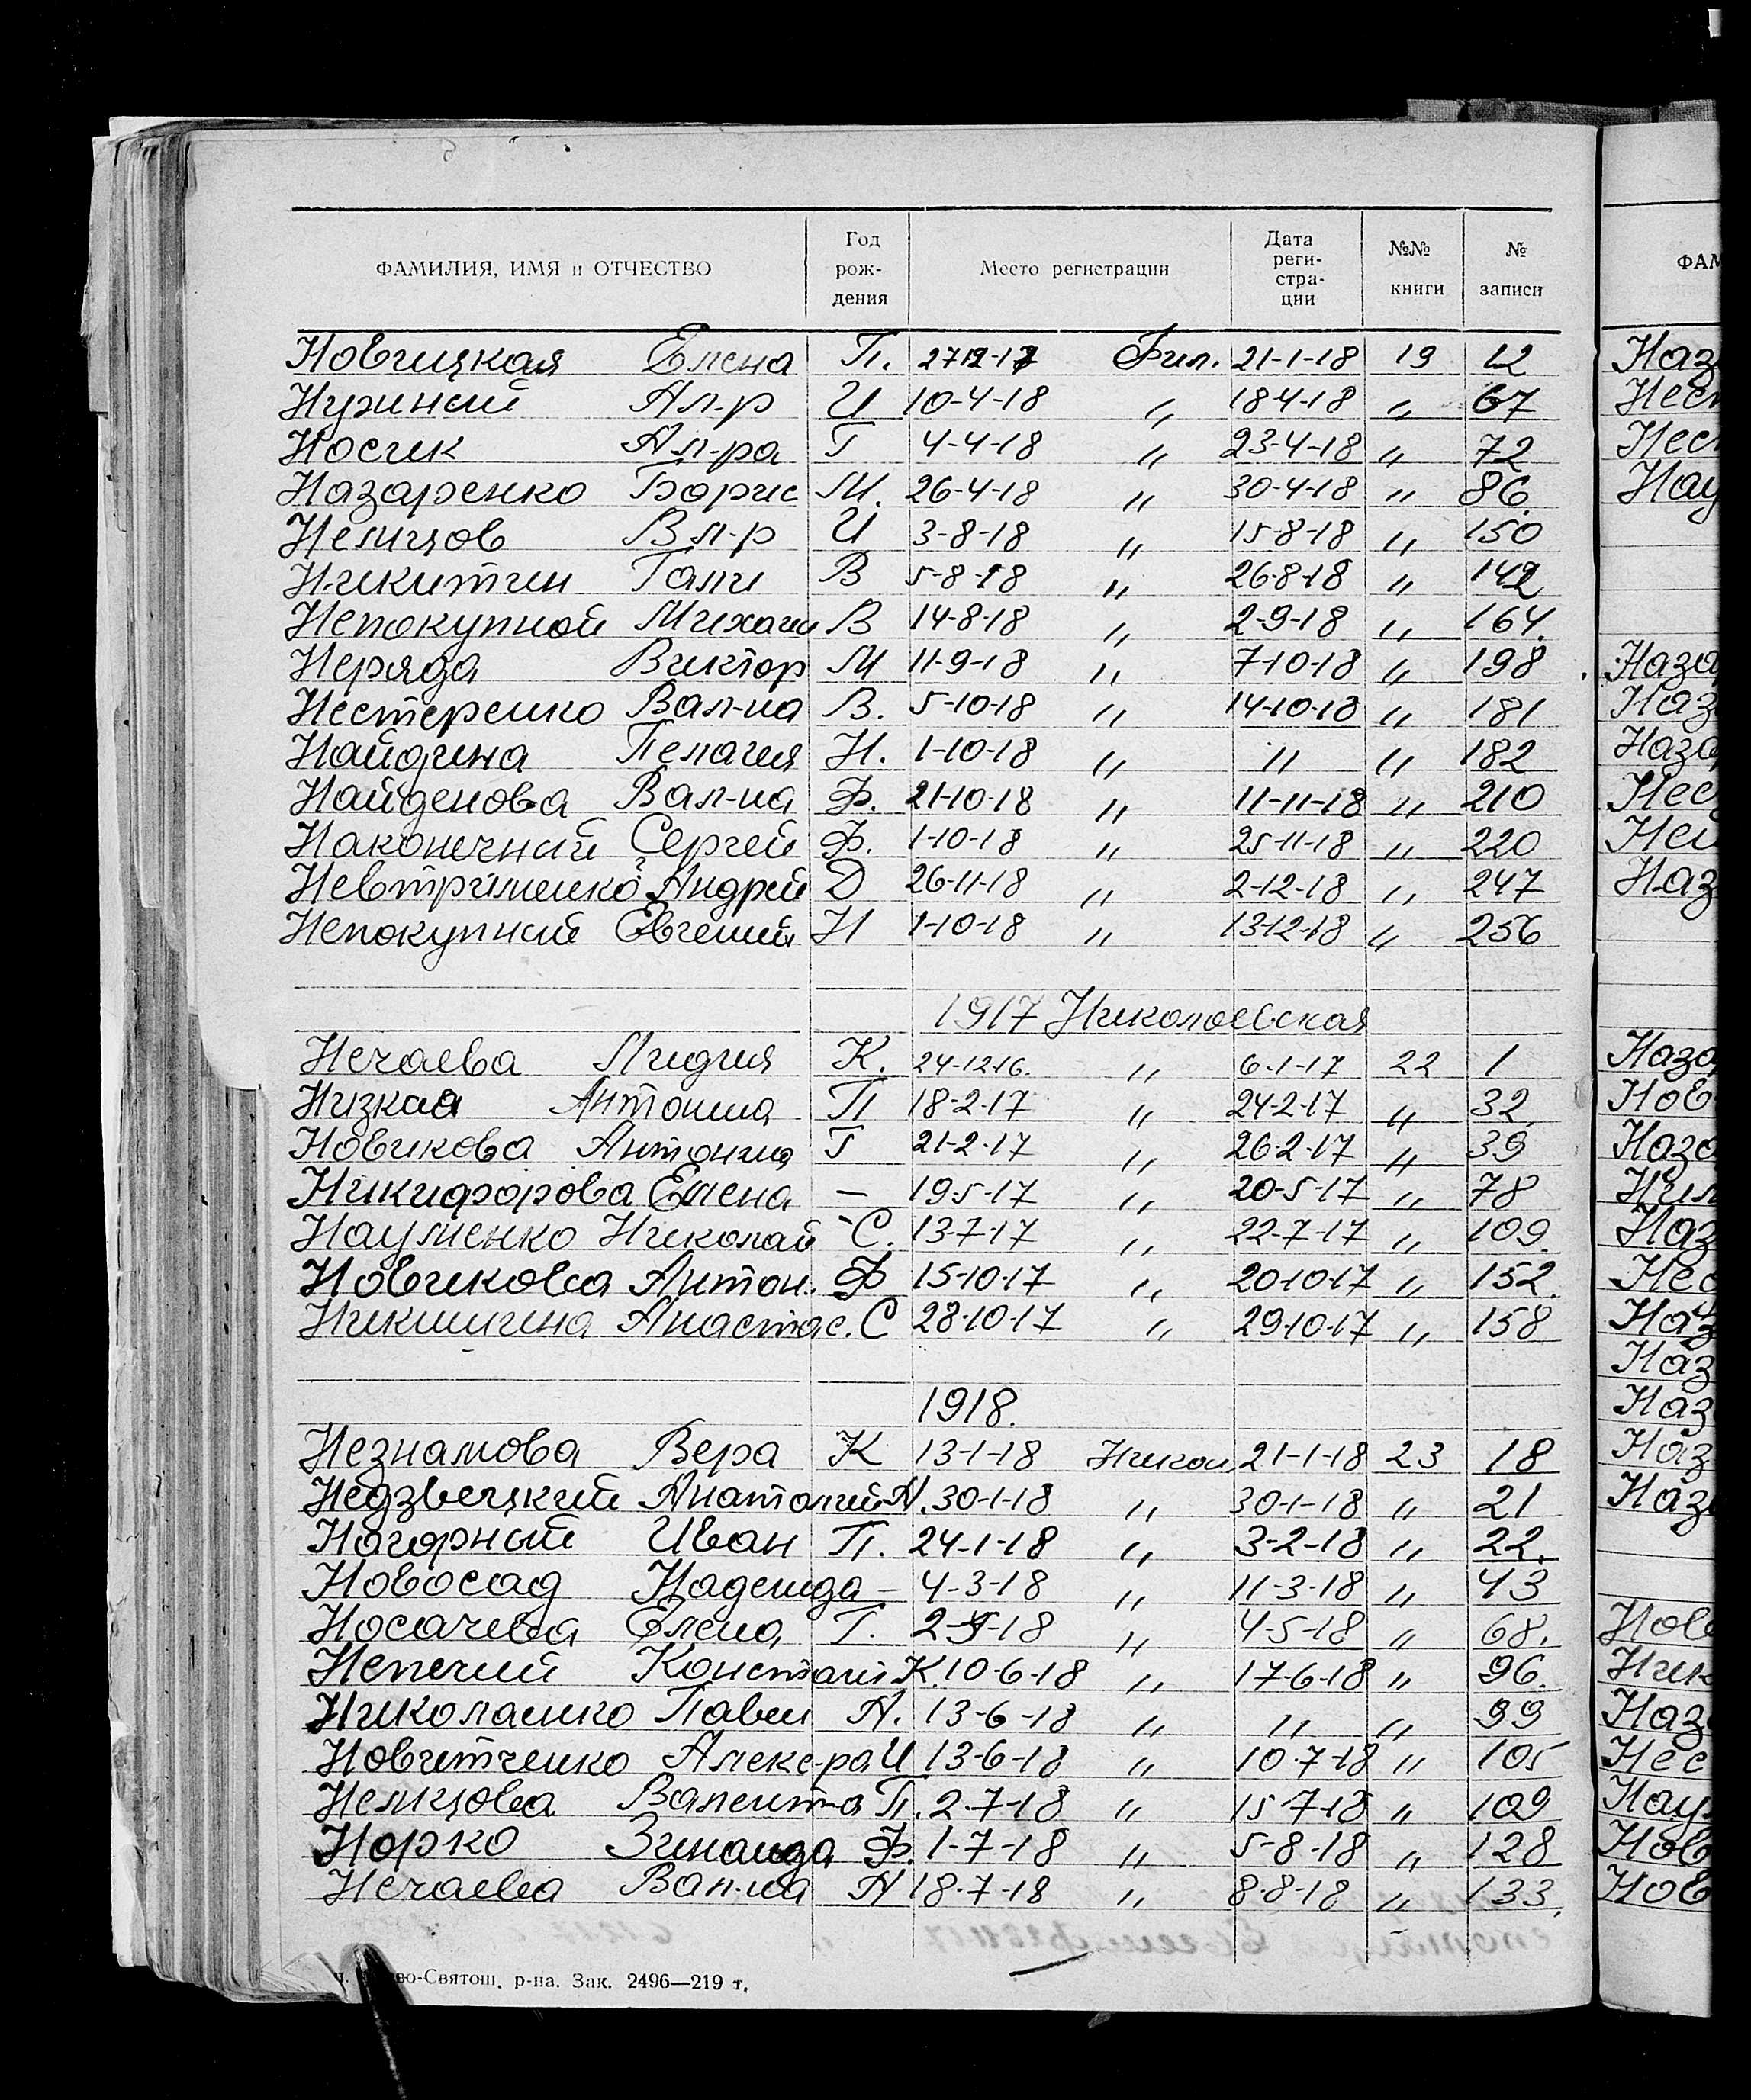 ФАМИЛИЯ, ИМЯ и ОТЧЕСТВО Год рождения Место регистрации Дата регистрации №№ книги № записи
Новицкая Елена П. 27-12-17 Фил. 21-1-18 19 12
Нужный Ал-р И 10-4-18 " 18-4-18 " 67
Носик Ал-ра Г 4-4-18 " 23-4-18 " 72
Назаренко Борис М. 26-4-18 " 30-4-18 " 86
Немцов Вл-р И 3-8-18 " 15-8-18 " 150
Никитин Гали В 5-8-18 " 26-8-18 " 142
Непокупной Михаил В 14-8-18 " 2-9-18 " 164.
Неряда Виктор М 11-9-18 " 7-10-18 " 198
Нестеренко Вал-на В. 5-10-18 " 14-10-18 " 181
Найдина Пелагия Н. 1-10-18 " " " 182
Найденова Вал-на Ф. 21-10-18 " 11-11-18 " 210
Наконечный Сергей Ф. 1-10-18 " 25-11-18 " 220
Невтрименко Андрей Д 26-11-18 " 2-12-18 " 247
Непокупный Евгений Н 1-10-18 " 13-12-18 " 256
1917 Николаевская
Нечаева Лидия К. 24-12-16. " 6-1-17 22 1
Низкая Антонина П 18-2-17 " 24-2-17 " 32
Новикова Антонина Г 21-2-17 " 26-2-17 " 39
Никифорова Елена — 19-5-17 " 20-5-17 " 78
Науменко Николай С. 13-7-17 " 22-7-17 " 109.
Новикова Антон. Ф 15-10-17 " 20-10-17 " 152.
Никишина Анастас. С 28-10-17 " 29-10-17 " 158
1918.
Незнамова Вера К 13-1-18 Никол. 21-1-18 23 18
Недзвецкий Анатолий А. 30-1-18 " 30-1-18 " 21
Нагорный Иван П. 24-1-18 " 3-2-18 " 22.
Новосад Надежда — 4-3-18 " 11-3-18 " 43
Носачева Елена Г. 2-5-18 " 4-5-18 " 68.
Непечий Констант К. 10-6-18 " 17-6-18 " 96.
Николаенко Павел А. 13-6-18 " " " 99
Новитченко Алекс-ра И 13-6-18 " 10-7-18 " 105
Немцова Валент-а П. 2-7-18 " 15-7-18 " 109
Норко Зинаида Ф. 1-7-18 " 5-8-18 " 128
Нечаева Вал-на А 18-7-18 " 8-8-18 " 133.
во-Святош. р-на. Зак. 2496—219 т.